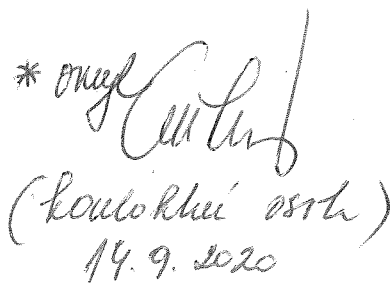 * omyl
(kontaktní osoba)
14. 9. 2020